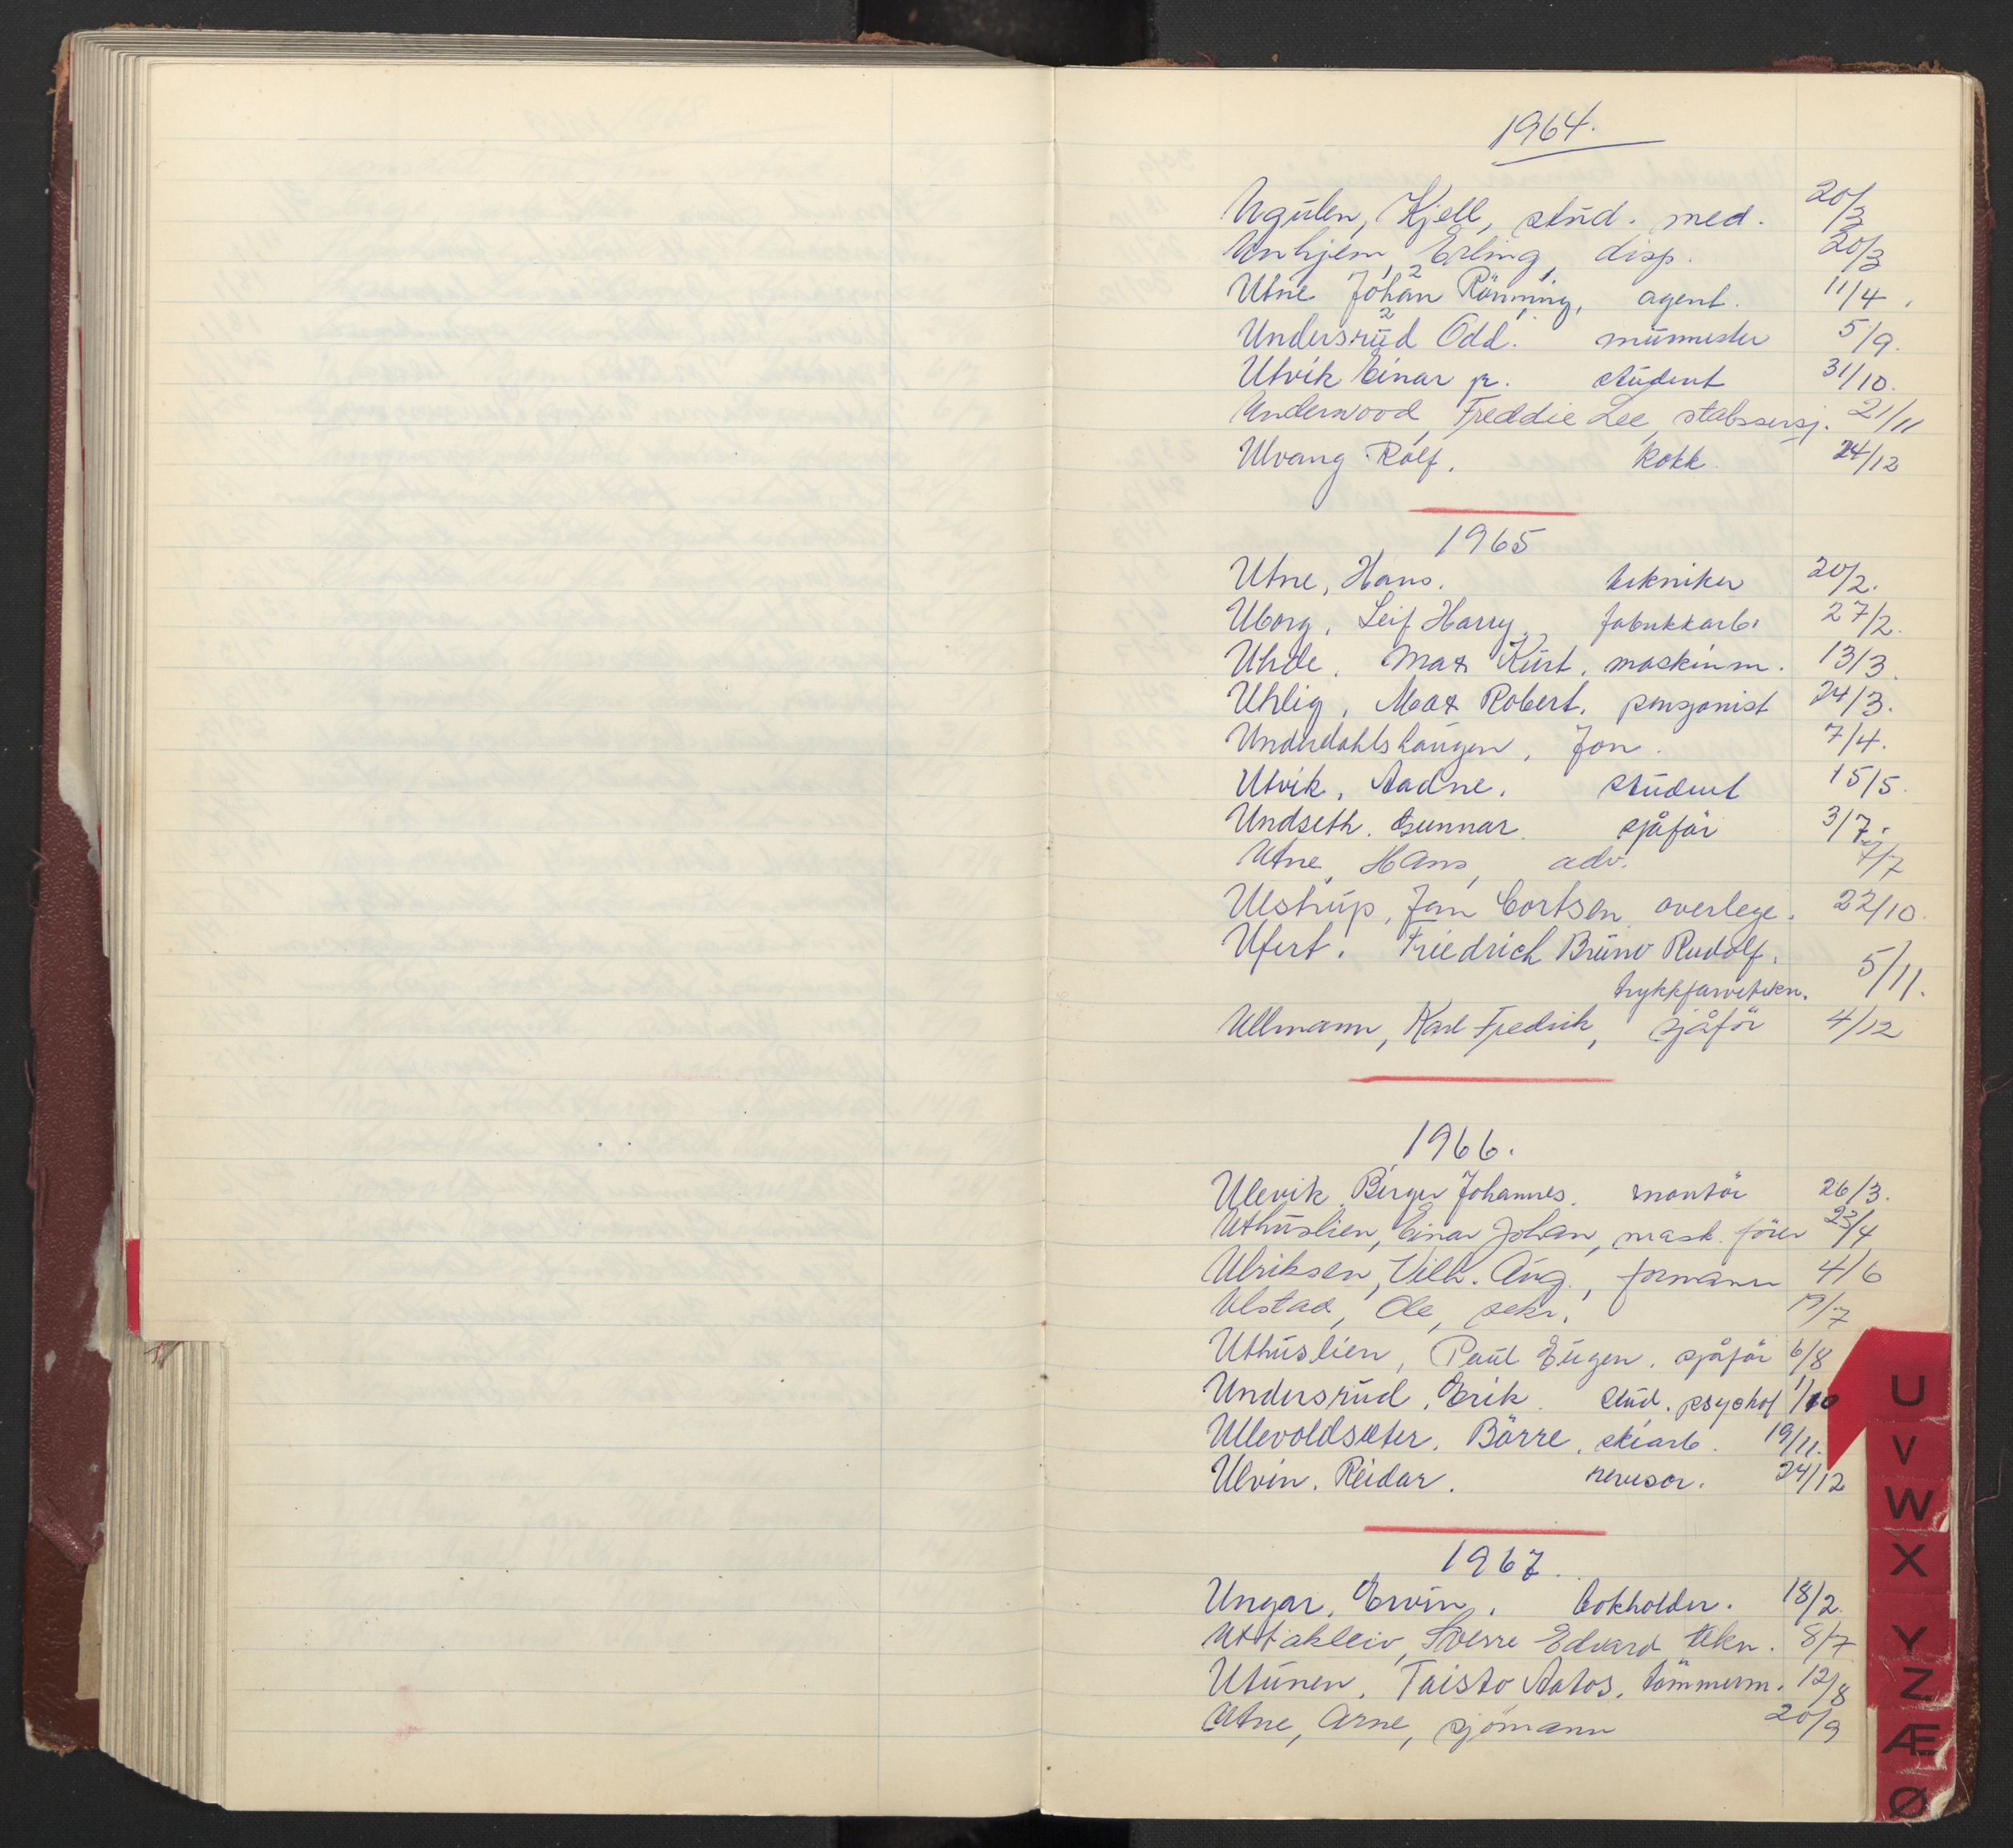 1964.
Ugulen, Kjell, stud. med. 20/3
Unhjem, Erling, disp. 20/3
Utne Johan Rönning, agent. 11/4
Undersrud Odd. murmester 5/9.
Utvik Einar jr. student 31/10.
Underwood, Freddie Lee, stabssersj. 21/11
Ulvang Rolf. kokk. 24/12
1965
Utne, Hans. tekniker 20/2.
Uborg, Leif Harry, fabrikkarb. 27/2.
Uhde, Max Kurt, maskinm. 13/3.
Uhlig, Max Robert, pensjonist 24/3.
Underdahlshaugen, Jon. 7/4.
Utvik, Aadne. student 15/5.
Undseth. Gunnar. sjåför 3/7.
Utne, Hans, adv. 7/7
Ulstrup, Jan Cortsen overlege. 22/10.
Ufert. Friedrich Bruno Rudolf.
trykkfarvetekn. 5/11.
Ullmann, Karl Fredrik, sjåför 4/12
1966.
Ulevik, Birger Johannes. montör 26/3.
Uthuslien, Einar Johan, mask. förer 23/4
Ulriksen, Vilh. Aug., formann 4/6
Ulstad, Ole, sekr. /7
Uthuslien, Paul Eugen. sjåför 6/8
Undersrud, Erik. stud. psychol 1/10
Ullevoldsæter, Börre, skiarb. 19/11.
Ulvin. Reidar. revisor. 24/12
1967.
Ungar, Ervin. bokholder. 18/2.
Uttakleiv, Sverre Edvard tekn. 8/7
Utunen, Taisto Aatos, tömmerm. 12/8
Utne, Arne, sjömann 20/9
U
V
W
X
Y
Z
Æ
Ø